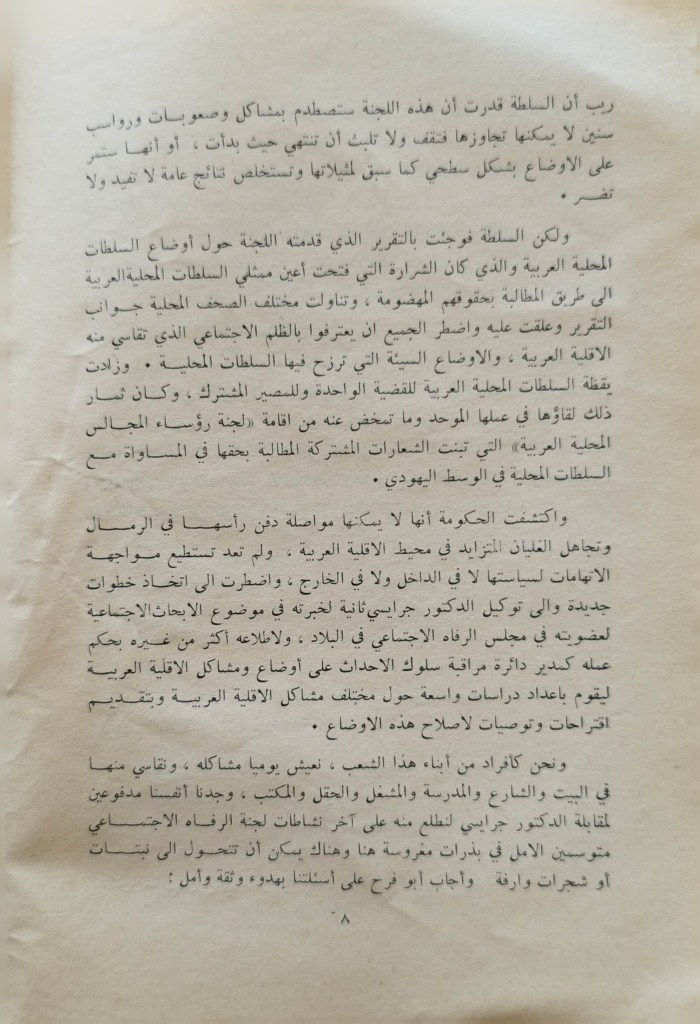 ريب أن السلطة قدرت أن هذه اللجنة ستصطدم بمشاكل وصعوبات ورواسب
سنين لا يمكنها تجاوزها فتقف ولا تلبث أن تنتهي حيث بدأت ، أو أنها ستمر
على الاوضاع بشكل سطحي كما سبق لمثيلاتها وتستخلص نتائج عامة لا تفيد ولا
تضر .
ولكن السلطة فوجئت بالتقرير الذي قدمته اللجنة حول أوضاع السلطات
المحلية العربية والذي كان الشرارة التي فتحت أعين ممثلي السلطات المحلية العربية
الى طريق المطالبة بحقوقهم المهضومة ، وتناولت مختلف الصحف المحلية جوانب
التقرير وعلقت عليه واضطر الجميع ان يعترفوا بالظلم الاجتماعي الذي تقاسي منه
الاقلية العربية ، والاوضاع السيئة التي ترزح فيها السلطات المحلية . وزادت
يقظة السلطات المحلية العربية للقضية الواحدة وللمصير المشترك ، وكان ثمار
ذلك لقاؤها في عملها الموحد وما تمخض عنه من اقامة «لجنة رؤساء المجالس
المحلية العربية» التي تبنت الشعارات المشتركة المطالبة بحقها في المساواة مع
السلطات المحلية في الوسط اليهودي .
واكتشفت الحكومة أنها لا يمكنها مواصلة دفن رأسها في الرمال
وتجاهل الغليان المتزايد في محيط الاقلية العربية ، ولم تعد تستطيع مواجهة
الاتهامات لسياستها لا في الداخل ولا في الخارج ، واضطرت الى اتخاذ خطوات
جديدة والى توكيل الدكتور جرايسي ثانية لخبرته في موضوع الابحاث الاجتماعية
لعضويته في مجلس الرفاه الاجتماعي في البلاد ، ولاطلاعه أكثر من غيره بحكم
عمله كمدير دائرة مراقبة سلوك الاحداث على أوضاع ومشاكل الاقلية العربية
ليقوم باعداد دراسات واسعة حول مختلف مشاكل الاقلية العربية وبتقديم
اقتراحات وتوصيات لاصلاح هذه الاوضاع .
ونحن كأفراد من أبناء هذا الشعب ، نعيش يوميا مشاكله ، ونقاسي منها
في البيت والشارع والمدرسة والمشغل والحقل والمكتب ، وجدنا أنفسنا مدفوعين
لمقابلة الدكتور جرايسي لنطلع منه على آخر نشاطات لجنة الرفاه الاجتماعي
متوسمين الامل في بذرات مغروسة هنا وهناك يمكن أن تتحول الى نبتات
أو شجرات وارفة وأجاب أبو فرح على أسئلتنا بهدوء وثقة وأمل :
٨